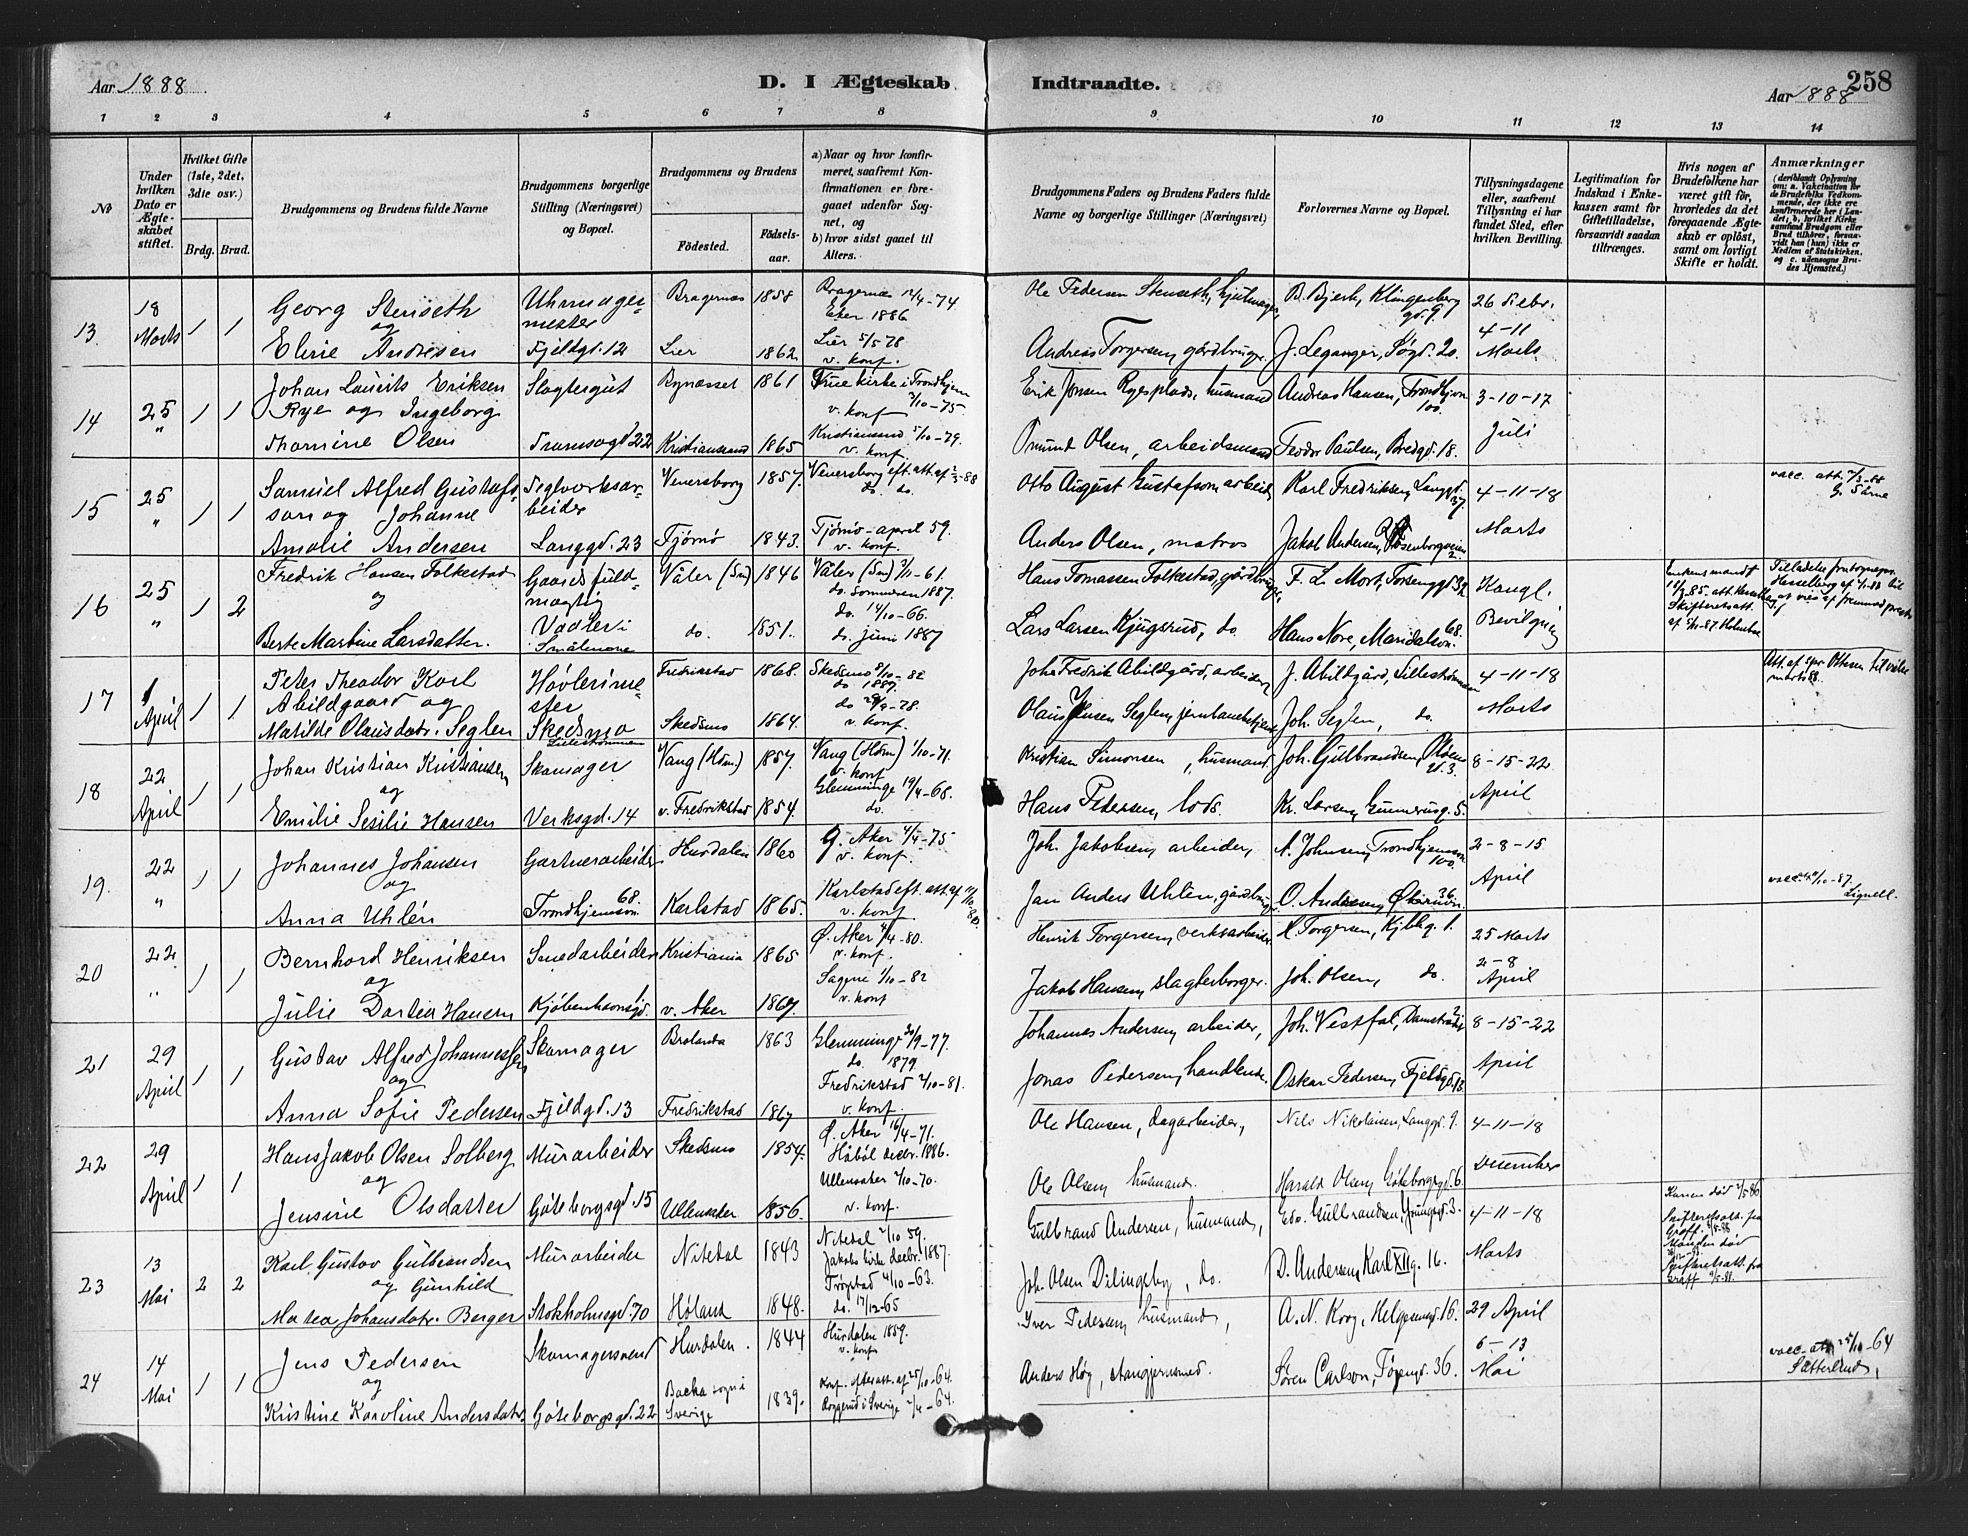 Aar 1888. D. I Ægteskab Indtraadte. 258
Aar 1888
1 2 3 4 5 6 7 8 9 10 11 12 13 14
No
Under hvilken Dato er Ægteskabet stiftet.
Hvilket Gifte (1ste, 2det, 3die osv.)
Brdg. Brud.
Brudgommens og Brudens fulde Navne
Brudgommens borgerlige Stilling (Næringsvei) og Bopæl.
Brudgommens og Brudens
Fødested.
Fødselsaar.
a) Naar og hvor konfirmeret, saafremt Konfirmationen er foregaaet udenfor Sognet, og
b) hvor sidst gaaet til Alters.
Brudgommens Faders og Brudens Faders fulde Navne og borgerlige Stillinger (Næringsvei)
Forlovernes Navne og Bopæl.
Tillysningsdagene eller, saafremt Tillysning ei har fundet Sted, efter hvilken Bevilling.
Legitimation for Indskud i Enkekassen samt for Giftetilladelse, forsaavidt saadan tiltrænges.
Hvis nogen af Brudefolkene har været gift før, hvorledes da det foregaaende Ægteskab er opløst, samt om lovligt Skifte er holdt.
Anmærkninger
(deriblandt Oplysning om: a. Vakcination for de Brudefolks Vedkommende, der ikke ere konfirmerede her i Landet; b. hvilket Kirkesamfund Brudgom eller Brud tilhører, forsaavidt han (hun) ikke er Medlem af Statskirken, og c. udensogns Brudes Hjemsted.)
13 18 Marts 1 1 Georg Stenseth Uhrmagermester Bragernæs 1858 Bragernæs 12/4-74 Eker 1886 Ole Pedersen Stenseth, B. Bjerk, Klingenberg gd. 9. 26 Febr.
og 4-11
Eline Andresen Fjeldgd. 12 Lier 1862 Lier 5/5 78 v. konf. Andreas Torgersen, gårdbruger. J. Leganger, Søgd. 20. Marts
14 25 " 1 1 Johan Laurits Eriksen Slagtergut Bynæsset 1861 Frue kirke i Trondhjem 3/10-75 v. konf Erik Jonsen Ryesplads, husmand Andreas Hansen, Trondhjemsvn 100. 3-10-17
Rye og Ingeborg
Thomine Olsen Tromsøgd 22 Kristianssand 1865 Kristianssand 5/10-79. v. konf. Omund Olsen, arbeidsmand Feodor Paulsen, Bredgd. 18. Juli
15 25 " 1 1 Samuel Alfred Gustafsson og Johanne Teglverksarbeider Venersborg 1857. Venersborg eft. att. af 2/3-88 do. do. Otto August Gustafson arbeid. Karl Fredriksen, Langgd. 37. 4-11-18 vacc. att. 7/3-88
Amalie Andersen Langgd. 23 Tjømø 1843. Tjømø-april 59. v. konf. Anders Olsen, matros Jakob Andersen, Rosenborgveien 2. Marts
16 25 " 1 2 Fredrik Hansen Folkestad Gaardsfuldmægtig Våler (Sm) 1846 Våler (Sm) 3/11-61. do. Sommeren 1887. Hans Tomassen Folkestad, gårdbrug. F. L. Mort, Torvengd 32. Kongl. Enkens mand † 18/9 85. att. Hesselberg Skifteretsatt. af 5/11-87 Holmboe Tilladelse fra sognepr. Hesselberg af 7/1-88 til at vies af fremmed prest.
og
Berte Martine Larsdatter. Vaaler i Smålenene do. 1851. do. 14/10-66. do. juni 1887 Lars Larsen Kjugsrud, do. Hans Nore, Maridalsvn. 68. Bevilgning
17 1 April 1 1 Peter Theodor Karl Høvlerimester Fredrikstad 1868. Skedsmo 8/10-82 do 1887. Johs Fredrik Abildgård, arbeider, J. Abildgård, Lilleströmmen 4-11-18 Att. af spr. Ottesen til vielse marts 88.
Abildgaard og
Matilde Olausdatr. Seglen Skedsmo Lilleströmmen Skedsmo 1864. do 29/9-78. v. konf. Olaus Jensen Seglen, jernbanebetjent Joh. Seglen, do. Marts
18 22 April 1 1 Johan Kristian Kristiansen Skomager Vang (Hdm.) 1857. Vang (Hdm) 1/10-71. v. konf Kristian Simonsen, husmand Joh. Gulbrandsen, 8-15-22
og
Emilie Sesilie Hansen Verksgd. 14 v. Fredrikstad 1854. Glemminge 19/4-68. do. Hans Pedersen, lods. Kr. Larsen, Gunnerusg. 5. April
19. 22 " 1 1 Johannes Johansen Gartnerarbeider Hurdalen 1860 G. Aker 4/4-75 v. konf. Joh. Jakobsen, arbeider, A. Johnsen, Trondhjemsvn 100. 2-8-15
og
Anna Uhlén Trondhjemsvn. 68. Karlstad 1865. Karlstad eft. att. af 11/10-80. v. konf. Jan Anders Uhlén, gårdbruger O. Andersen, Økernvn. 36 April vacc. att. 11/10-87. Lignell.
20 22 " 1 1 Bernhard Henriksen Smedarbeider Kristiania 1865 Ø. Aker 4/4-80. v. konf. Henrik Torgersen, verksarbeider. H. Torgersen, 1. 25 Marts
og 2-8
Julie Dortea Hansen Kjøbenhavnsgd. v. Aker 1867. Sagene 1/10-82 v. konf Jakob Hansen, slagterborger. Joh. Olsen, do. April
21 29 April 1 1 Gustav Alfred Johannessen Skomager Brolanda 1863 Glemminge 30/9-77. do. 1879. Johannes Andersen, arbeider, Joh. Vestfal, Damstræde 8-15-22
og
Anna Sofie Pedersen Fjeldgd. 13 Fredrikstad 1867 Fredrikstad 2/10-81. v. konf. Jonas Pedersen, handlende. Oskar Pedersen, Fjeldgd. 13. April
22 29 April 1 1 Hans Jakob Olsen Solberg Murarbeider Skedsmo 1854. Ø. Aker 16/4-71. Håbøl decbr. 1886. Ole Hansen, dagarbeider, Nils Nikolaisen, Langgd. 9. 4-11-18
og
Jensine Olsdatter Göteborgsgd. 15 Ullensaker 1856. Ullensaker 2/10-70. v. konf. Ole Olsen, husmand. Harald Olsen, Göteborgsgd. 6. December
23 13 Mai 2 2 Karl Gustav Gulbrandsen Murarbeider Nitedal 1843 Nitedal 2/10 59. Jakobs kirke decbr. 1887. Gulbrand Andersen, husmand, Edv. Gulbrandsen, 3. 4-11-18 Konen død 2/5 86. Skifteretsatt. fra Graff. 9/5-88
og Gunhild
Matea Johansdatr. Berger Stokholmsgd. 70 Høland 1848. Trøgstad 4/10-63. do. 17/12-65 Joh. Olsen Dilingsby, do. D. Andersen, Karl XIIg. 16. Marts Manden død Skifteretsatt. fra Graff 9/5-88.
24 14 Mai 1 1 Jens Pedersen Skomagersvend Hurdalen. 1844 Hurdalen 1859. v. konf. Iver Pedersen, husmand, A. N. Korg, Helgesensgd. 16. 29 April vacc. att. 25/10-64
og 6-13
Kristine Karoline Andersdatr. Göteborgsgd. 22 Backa sogn i Sverige 1839. Konf. efter att. af 25/10-64. i Sverige 2/4-64. Anders Høg, stangjernsmed. Sören Carlson, 36. Mai Sätterlund,